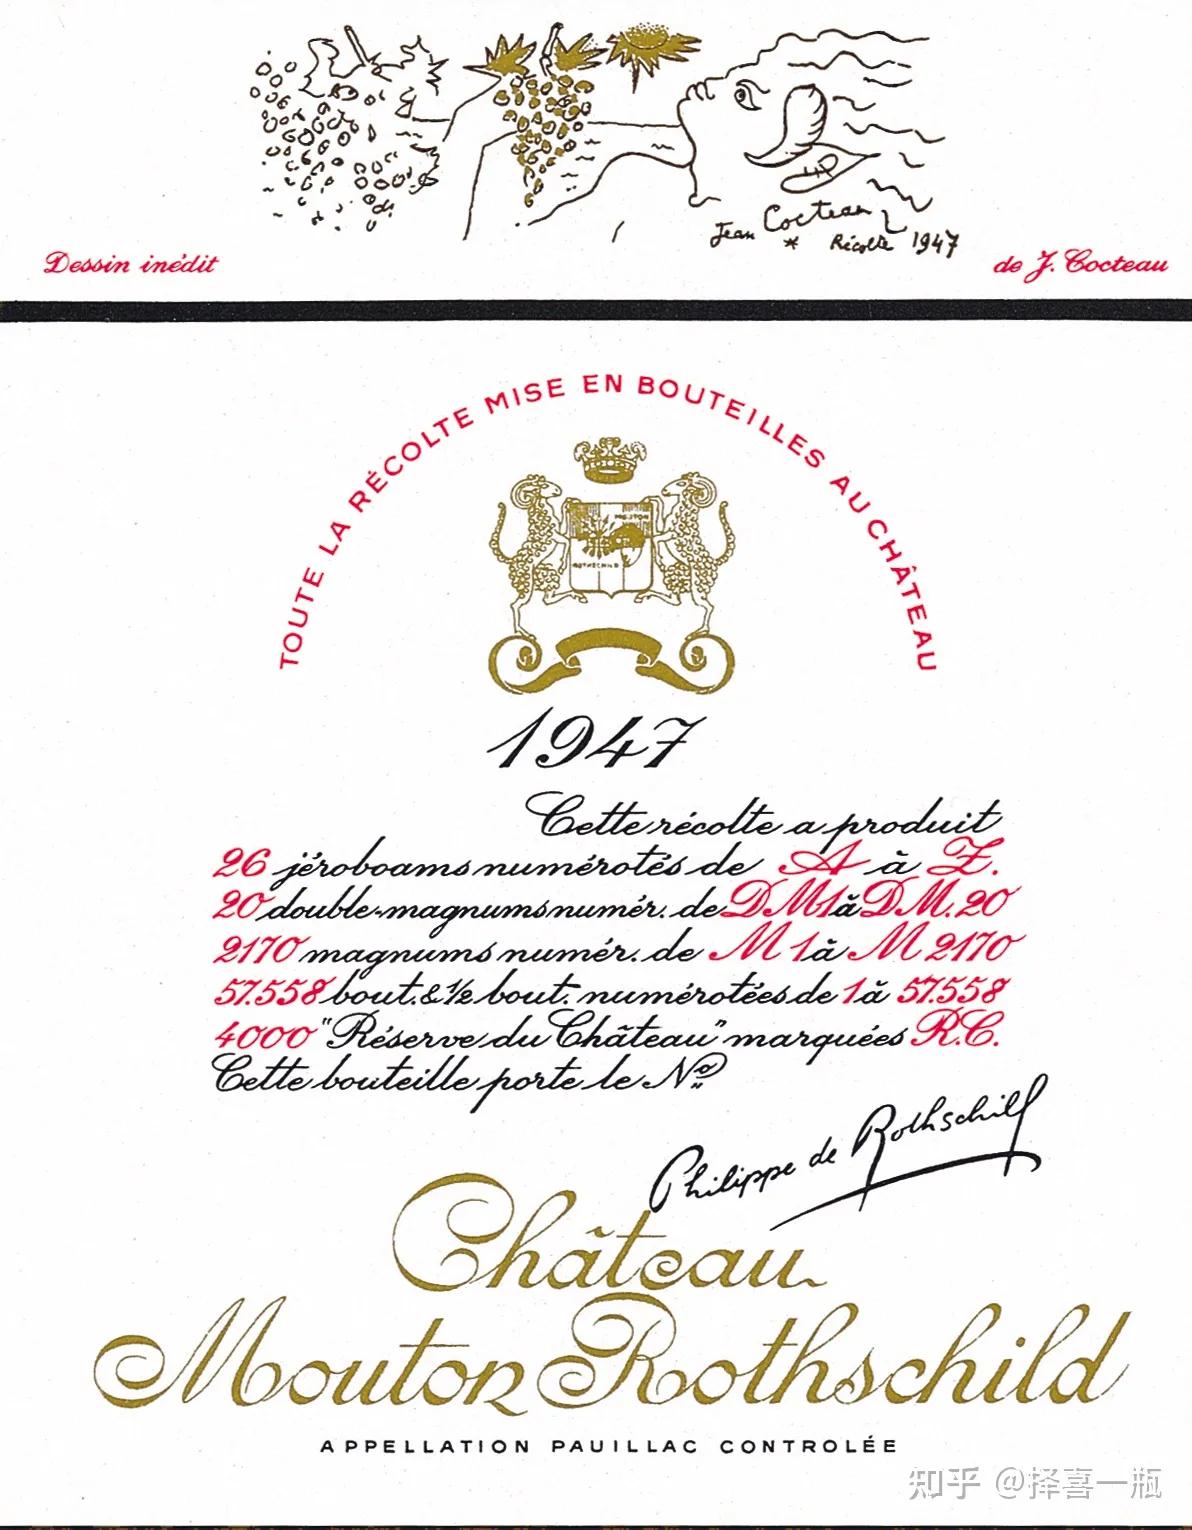 Jean Cocteau
* Récolte 1947
Dessin inédit
de J. Cocteau
TOUTE LA RÉCOLTE MISE EN BOUTEILLES AU CHÂTEAU
MOUTON
ROTHSCHILD
1947
Cette récolte a produit
26 jéroboams numérotés de A à Z.
20 double-magnums numér. de DM1 à DM.20
2170 magnums numér. de M 1 à M 2170
57.558 bout. & 1/2 bout. numérotées de 1 à 57.558
4000 "Réserve du Château" marquées R.C.
Cette bouteille porte le Nº
Philippe de Rothschild
Château
Mouton Rothschild
APPELLATION PAUILLAC CONTROLÉE
知乎 @择喜一瓶